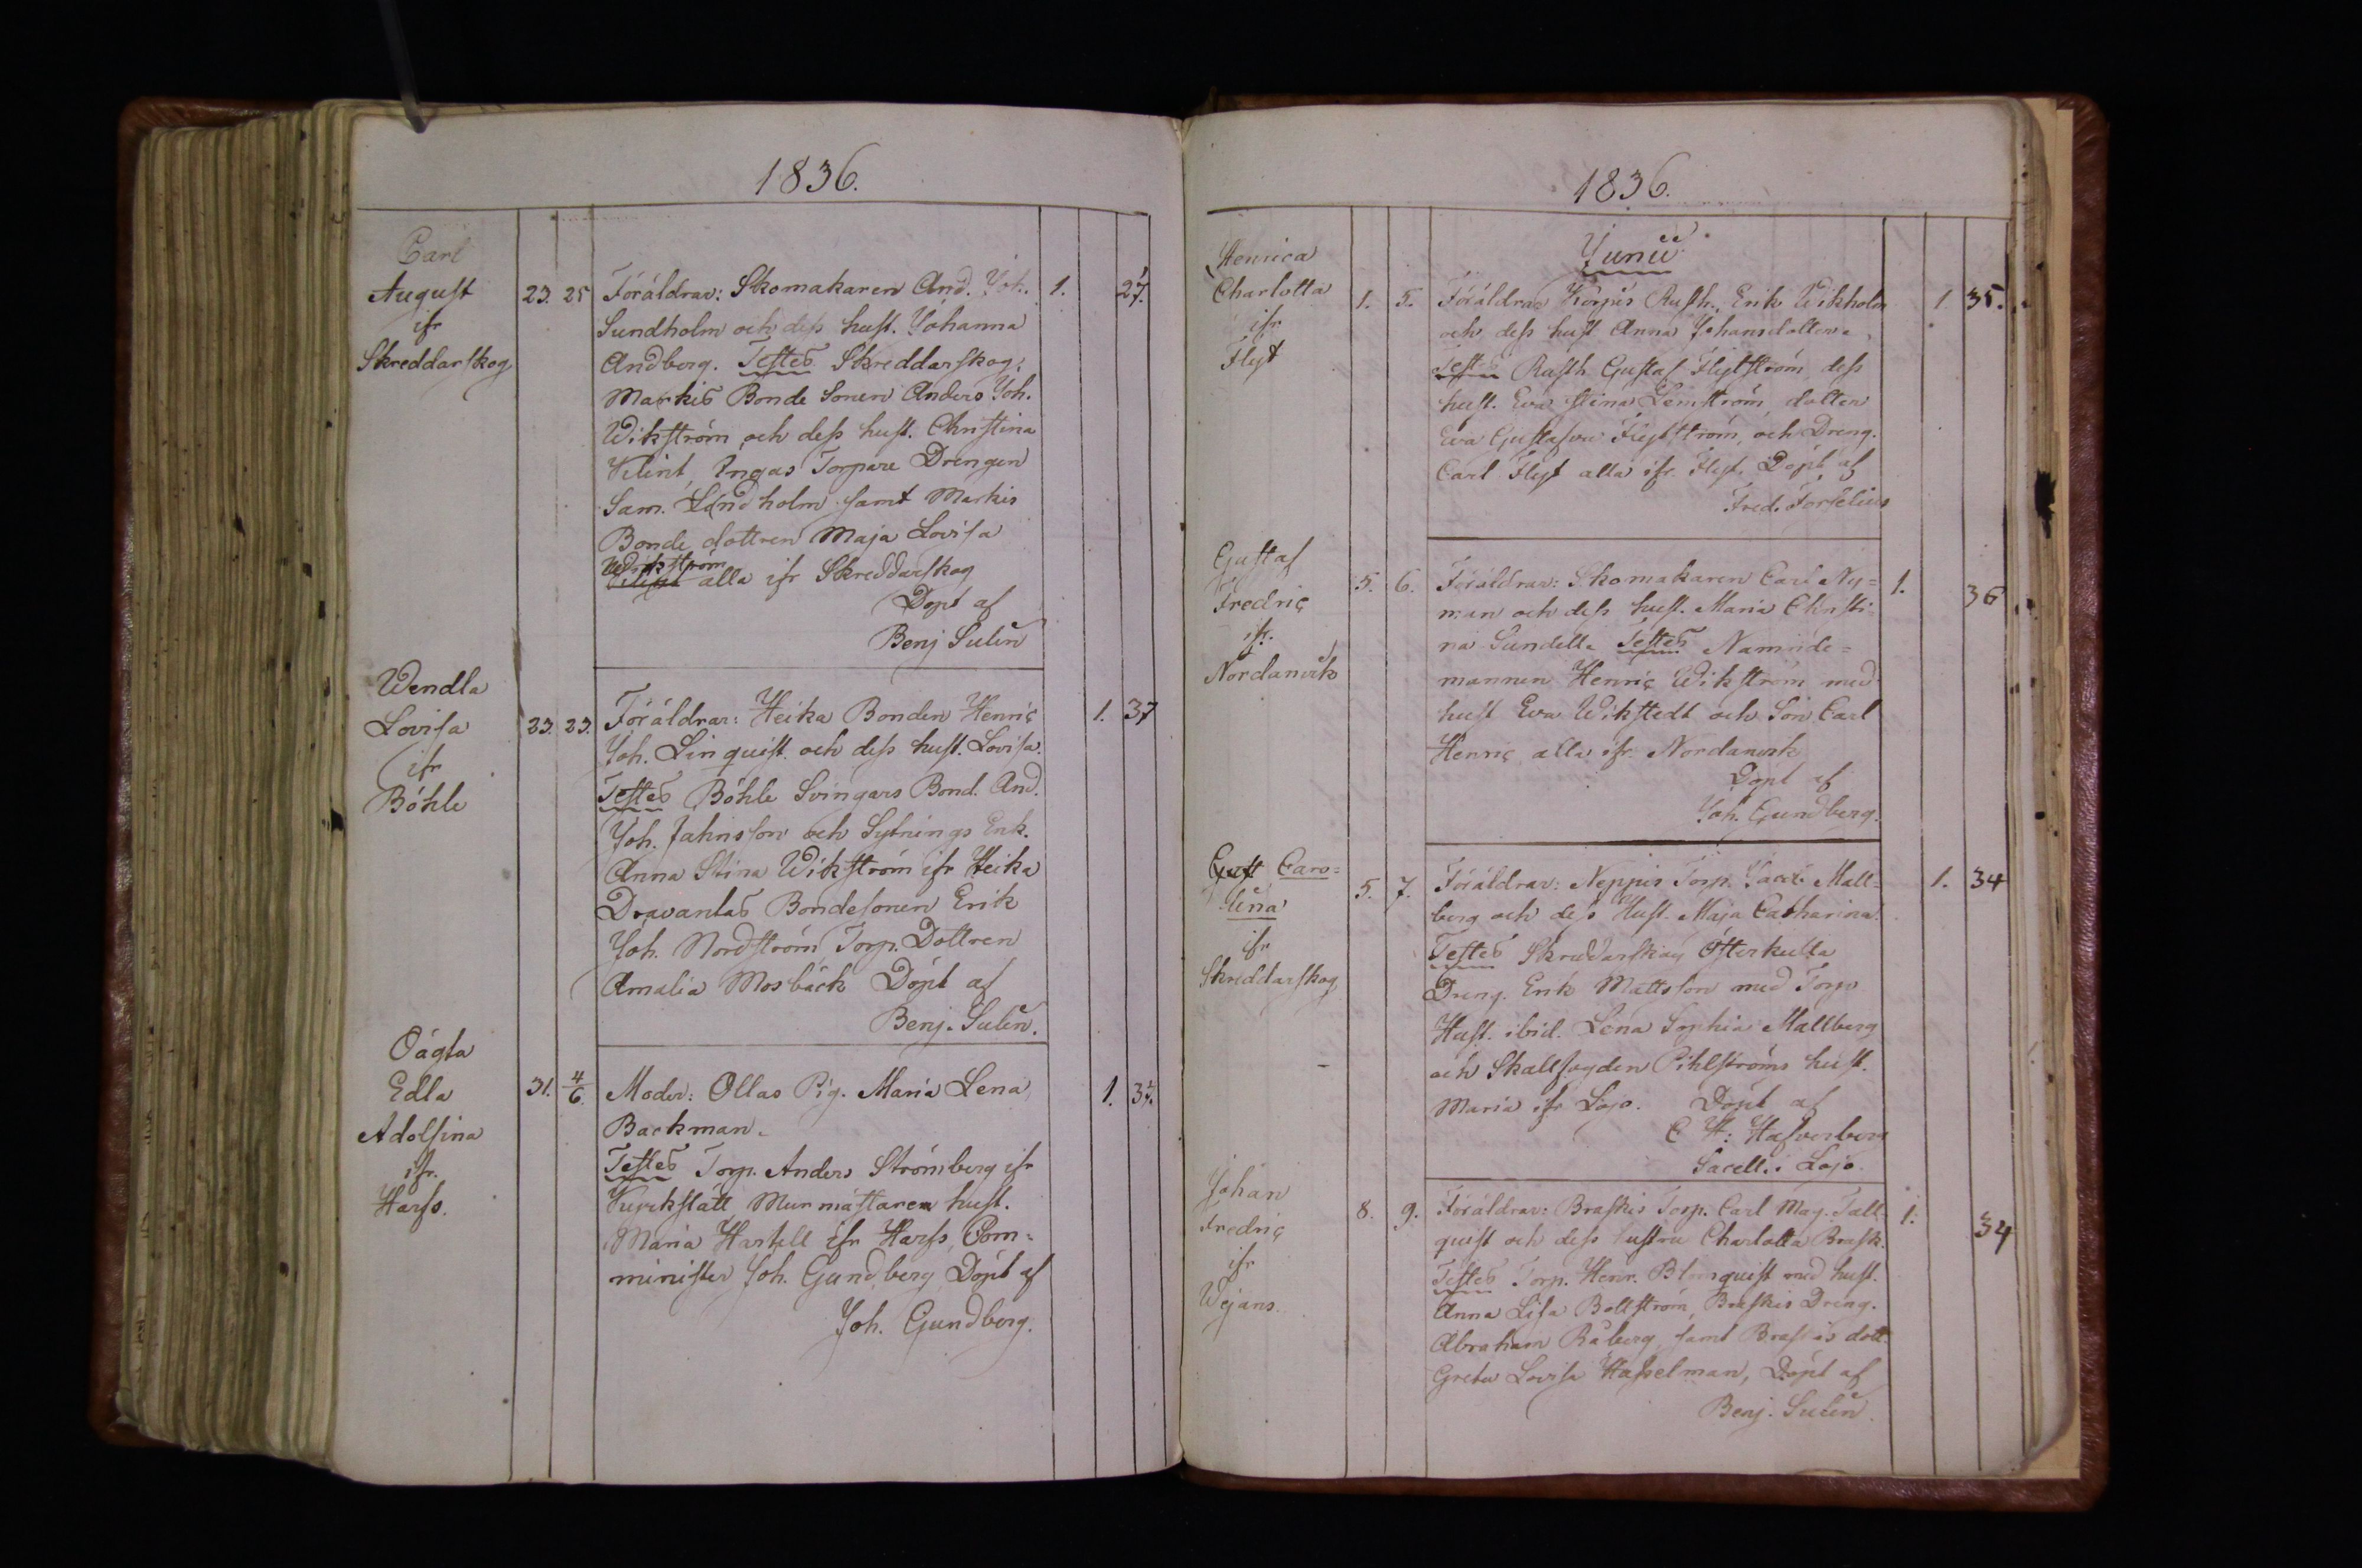 1836.
Carl
August
ifr
Skreddarskog
23. 25
Föräldrar: Skomakaren And. Joh.
Sundholm och dess hust. Johanna
Andberg. Testes Skreddarskog:
Markis Bonde Sonen Anders Joh.
Wikström och dess hust. Christina
Klint, Ingas Torpare Drengen
Sam. Sandholm samt Markis
Bonde dottren Maja Lovisa
Wikström
alla ifr Skreddarskog
Döpt af
Benj Sulin
1. 27.
Wendla
Lovisa
ifr
Böhle
23. 23.
Föräldrar: Heika Bonden Henric
Joh. Linquist och dess hust. Lovisa.
Testes Böhle Svingars Bond. And.
Joh. Jahnsson och Sytnings Enk.
Anna Stina Wikström ifr Heika
Dravantas Bondesonen Erik
Joh. Nordström, Torp. Dottren
Amalia Mosbäck Döpt af
Benj. Sulin.
1. 37
Edla
Adolfina
ifr.
Harfs.
31. 4/6.
Moder: Ollas Pig. Maria Lena
Backman.
Testes Torp. Anders Strömberg ifr
Murmästaren hust.
Maria Hartell ifr Harfs, Com=
minister Joh. Gundberg Döpt af
Joh. Gundberg.
1. 34.
1836.
Junii
Henrica
Charlotta
ifr
Flyt
1. 5.
Föräldrar Korpis Rusth. Erik Wikholm
och dess hust Anna Johansdotter.
Testes Rusth. Gustaf Flytström, dess
hust. Eva Stina Lemström, dotter
Eva Gustafva Flytström, och Dreng.
Carl Flyt alla ifr. Flyt. Döpt af
Fred. Forselius
1 35.
Gustaf
Fredric
ifr.
Nordanvik
5. 6.
Föräldrar: Skomakaren Carl Ny=
man och dess hust. Maria Christi=
na Sundell. Testes Nämnde=
mannen Henric Wikström med
hust Eva Wikstedt och Son Carl
Henric alla ifr Nordanvik
Döpt af
Joh. Gundberg.
1. 36
Caro=
lina
ifr
Skreddarskog
5. 7.
Föräldrar: Neppis Torp. Jacob Mall=
berg och dess Hust. Maja Catharina.
Testes Skreddarskog Österkulla
Dreng. Erik Mattsson med Torp.
Hust. ibid. Lena Sophia Mallberg
och Skallfogden Pihlströms hust.
Maria ifr Lojo. Döpt af
C H: Hafverberg
Sacell. i Lojo.
1. 34
Johan
Fredric
ifr
Wejans.
8. 9.
Föräldrar: Braskis Torp. Carl Mag. Tall=
quist och dess hustru Charlotta Brask.
Testes Torp. Henr. Blomquist med hust.
Anna Lisa Boltström, Braskis Dreng.
Abraham Råberg, samt Braskis dott.
Greta Lovisa Hasselman, Döpt af
Benj. Sulin.
1. 34